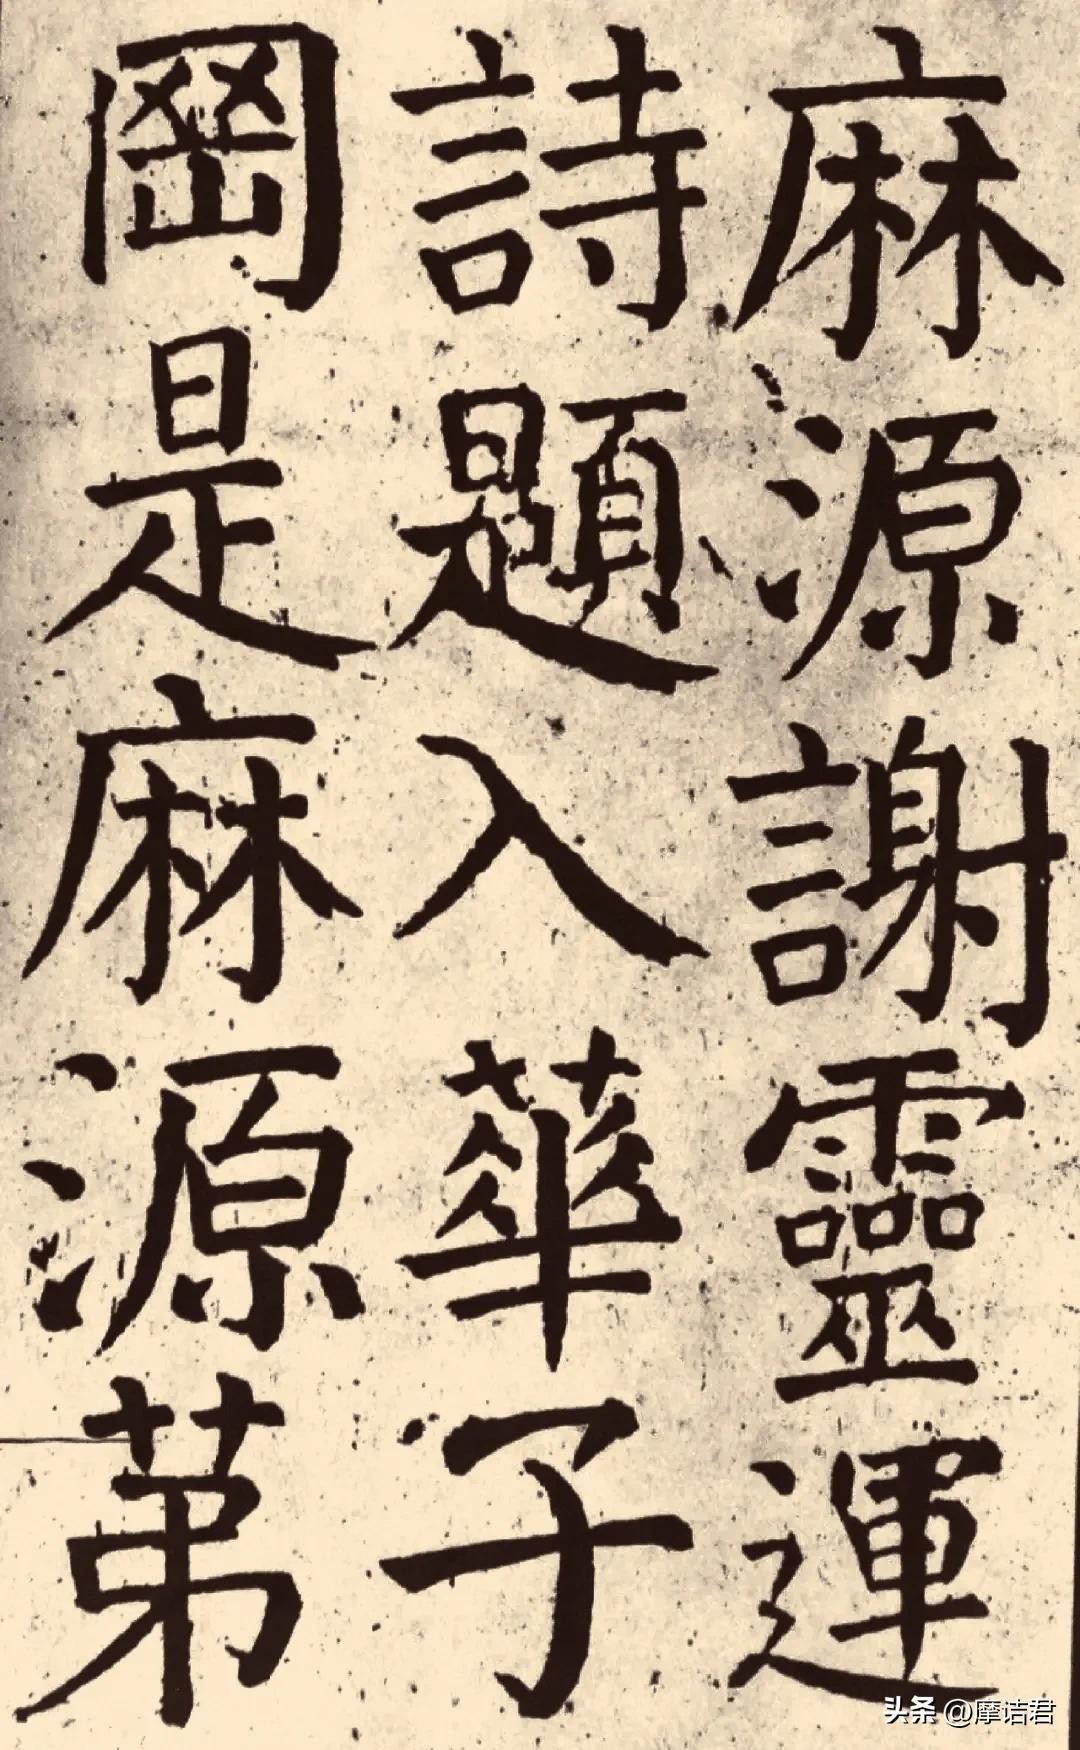 麻源謝靈運
詩題入華子
罡是麻源苐
头条 @摩诘君